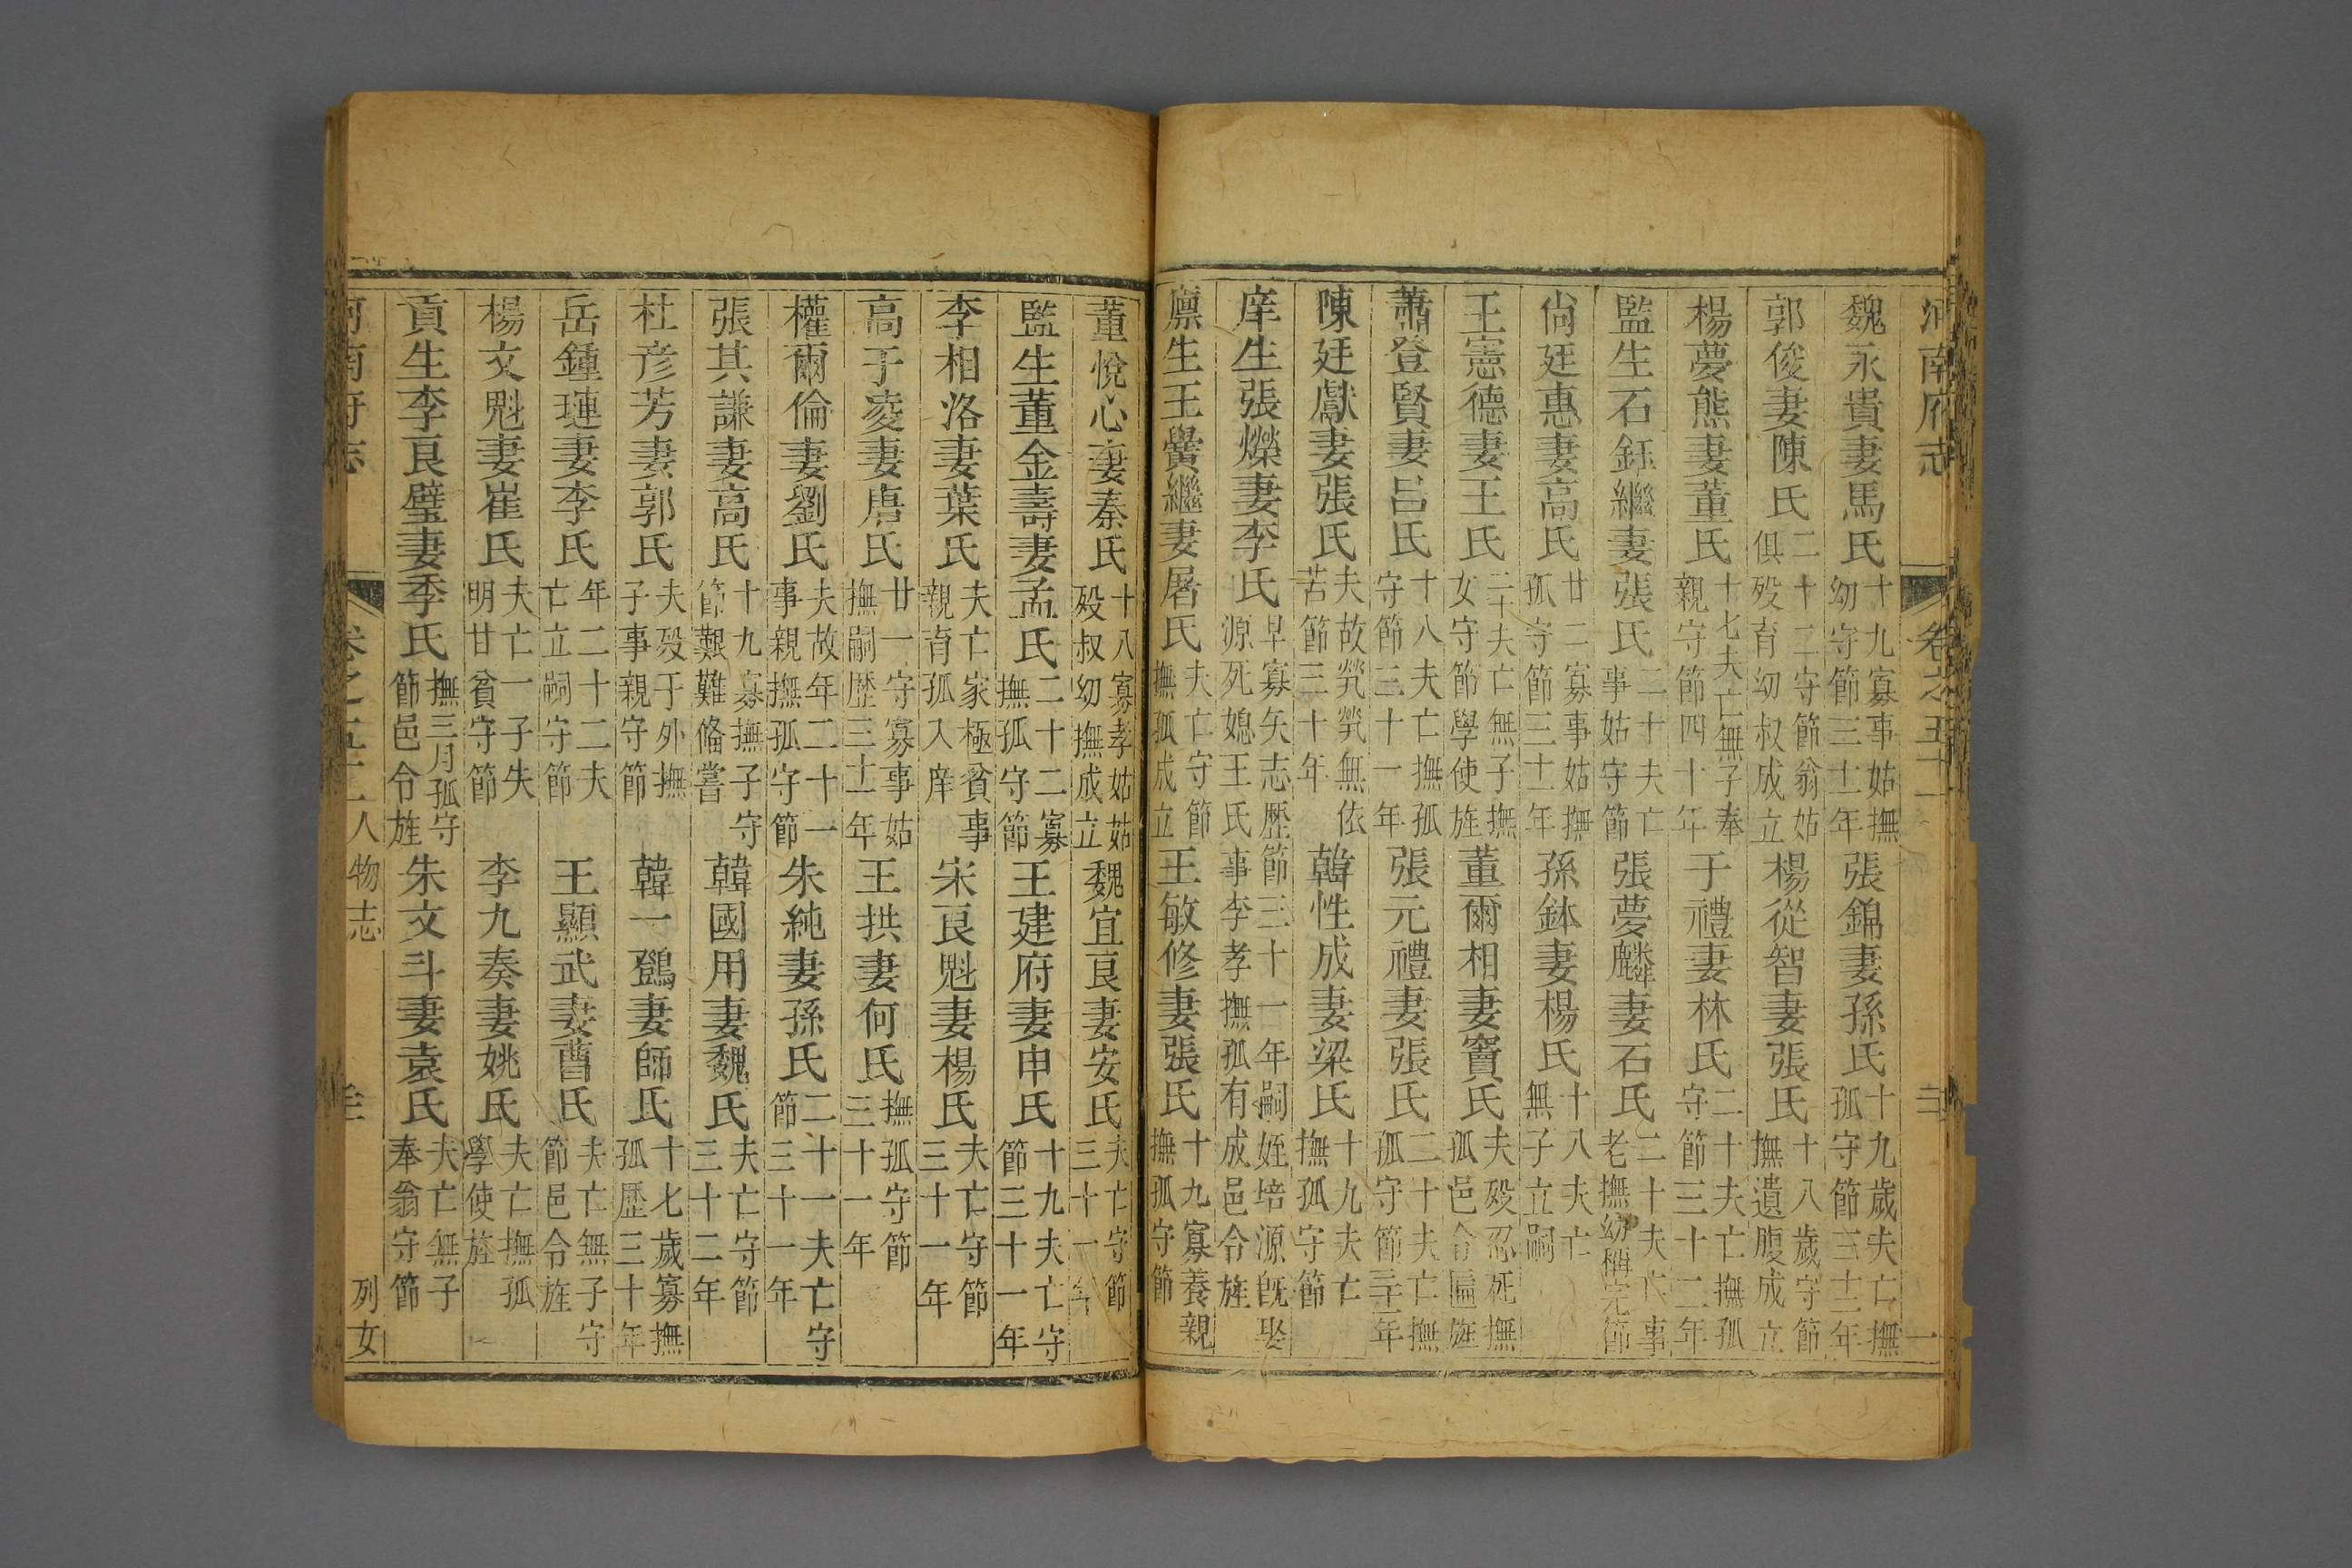 河南府志 卷之五十一
魏永貴妻馬氏 十九寡事姑撫幼守節三十一年 張錦妻孫氏 十九歲夫亡撫孤守節三十一年
郭俊妻陳氏 二十二守節翁姑俱歿育幼叔成立 楊從智妻張氏 十八歲守節撫遺腹成立
楊夢熊妻董氏 十七夫亡無子奉親守節四十年 于禮妻林氏 二十夫亡撫孤守節三十二年
監生石鈺繼妻張氏 二十夫亡事姑守節 張夢麟妻石氏 二十夫亡事老撫幼稱完節
尙廷惠妻高氏 廿二寡事姑撫孤守節三十一年 孫鉢妻楊氏 十八夫亡無子立嗣
王憲德妻王氏 二十夫亡無子撫女守節學使旌 董爾相妻竇氏 夫歿忍死撫孤邑令匾旌
蕭登賢妻呂氏 十八夫亡撫孤守節三十一年 張元禮妻張氏 二十夫亡撫孤守節三十一年
陳廷獻妻張氏 夫故煢煢無依苦節三十年 韓性成妻梁氏 十九夫亡撫孤守節
庠生張爍妻李氏 早寡矢志歷節三十一年嗣姪培源旣娶源死媳王氏事李孝撫孤有成邑令旌
廪生王黌繼妻屠氏 夫亡守節撫孤成立 王敏修妻張氏 十九寡養親撫孤守節
董悅心妻秦氏 十八寡孝姑姑殁叔幼撫成立 魏宜良妻安氏 夫亡守節三十一年
監生董金壽妻孟氏 二十二寡撫孤守節 王建府妻申氏 十九夫亡守節三十一年
李相洛妻葉氏 夫亡家極貧事親育孤入庠 宋良魁妻楊氏 夫亡守節三十一年
高于凌妻唐氏 廿一守寡事姑撫嗣歷三十一年 王拱妻何氏 撫孤守節三十一年
權爾倫妻劉氏 夫故年二十一事親撫孤守節 朱純妻孫氏 二十一夫亡守節三十一年
張其謙妻高氏 十九寡撫子守節艱難俻嘗 韓國用妻魏氏 夫亡守節三十二年
杜彦芳妻郭氏 夫歿于外撫子事親守節 韓一鵷妻師氏 十七歲寡撫孤歷三十年
岳鍾璉妻李氏 年二十二夫亡立嗣守節 王顯武妻曹氏 夫亡無子守節邑令旌
楊文魁妻崔氏 夫亡一子失明廿貧守節 李九奏妻姚氏 夫亡撫孤學使旌
貢生李良璧妻季氏 撫三月孤守節邑令旌 朱文斗妻袁氏 夫亡無子奉翁守節
河南府志 卷之五十一 人物志 列女